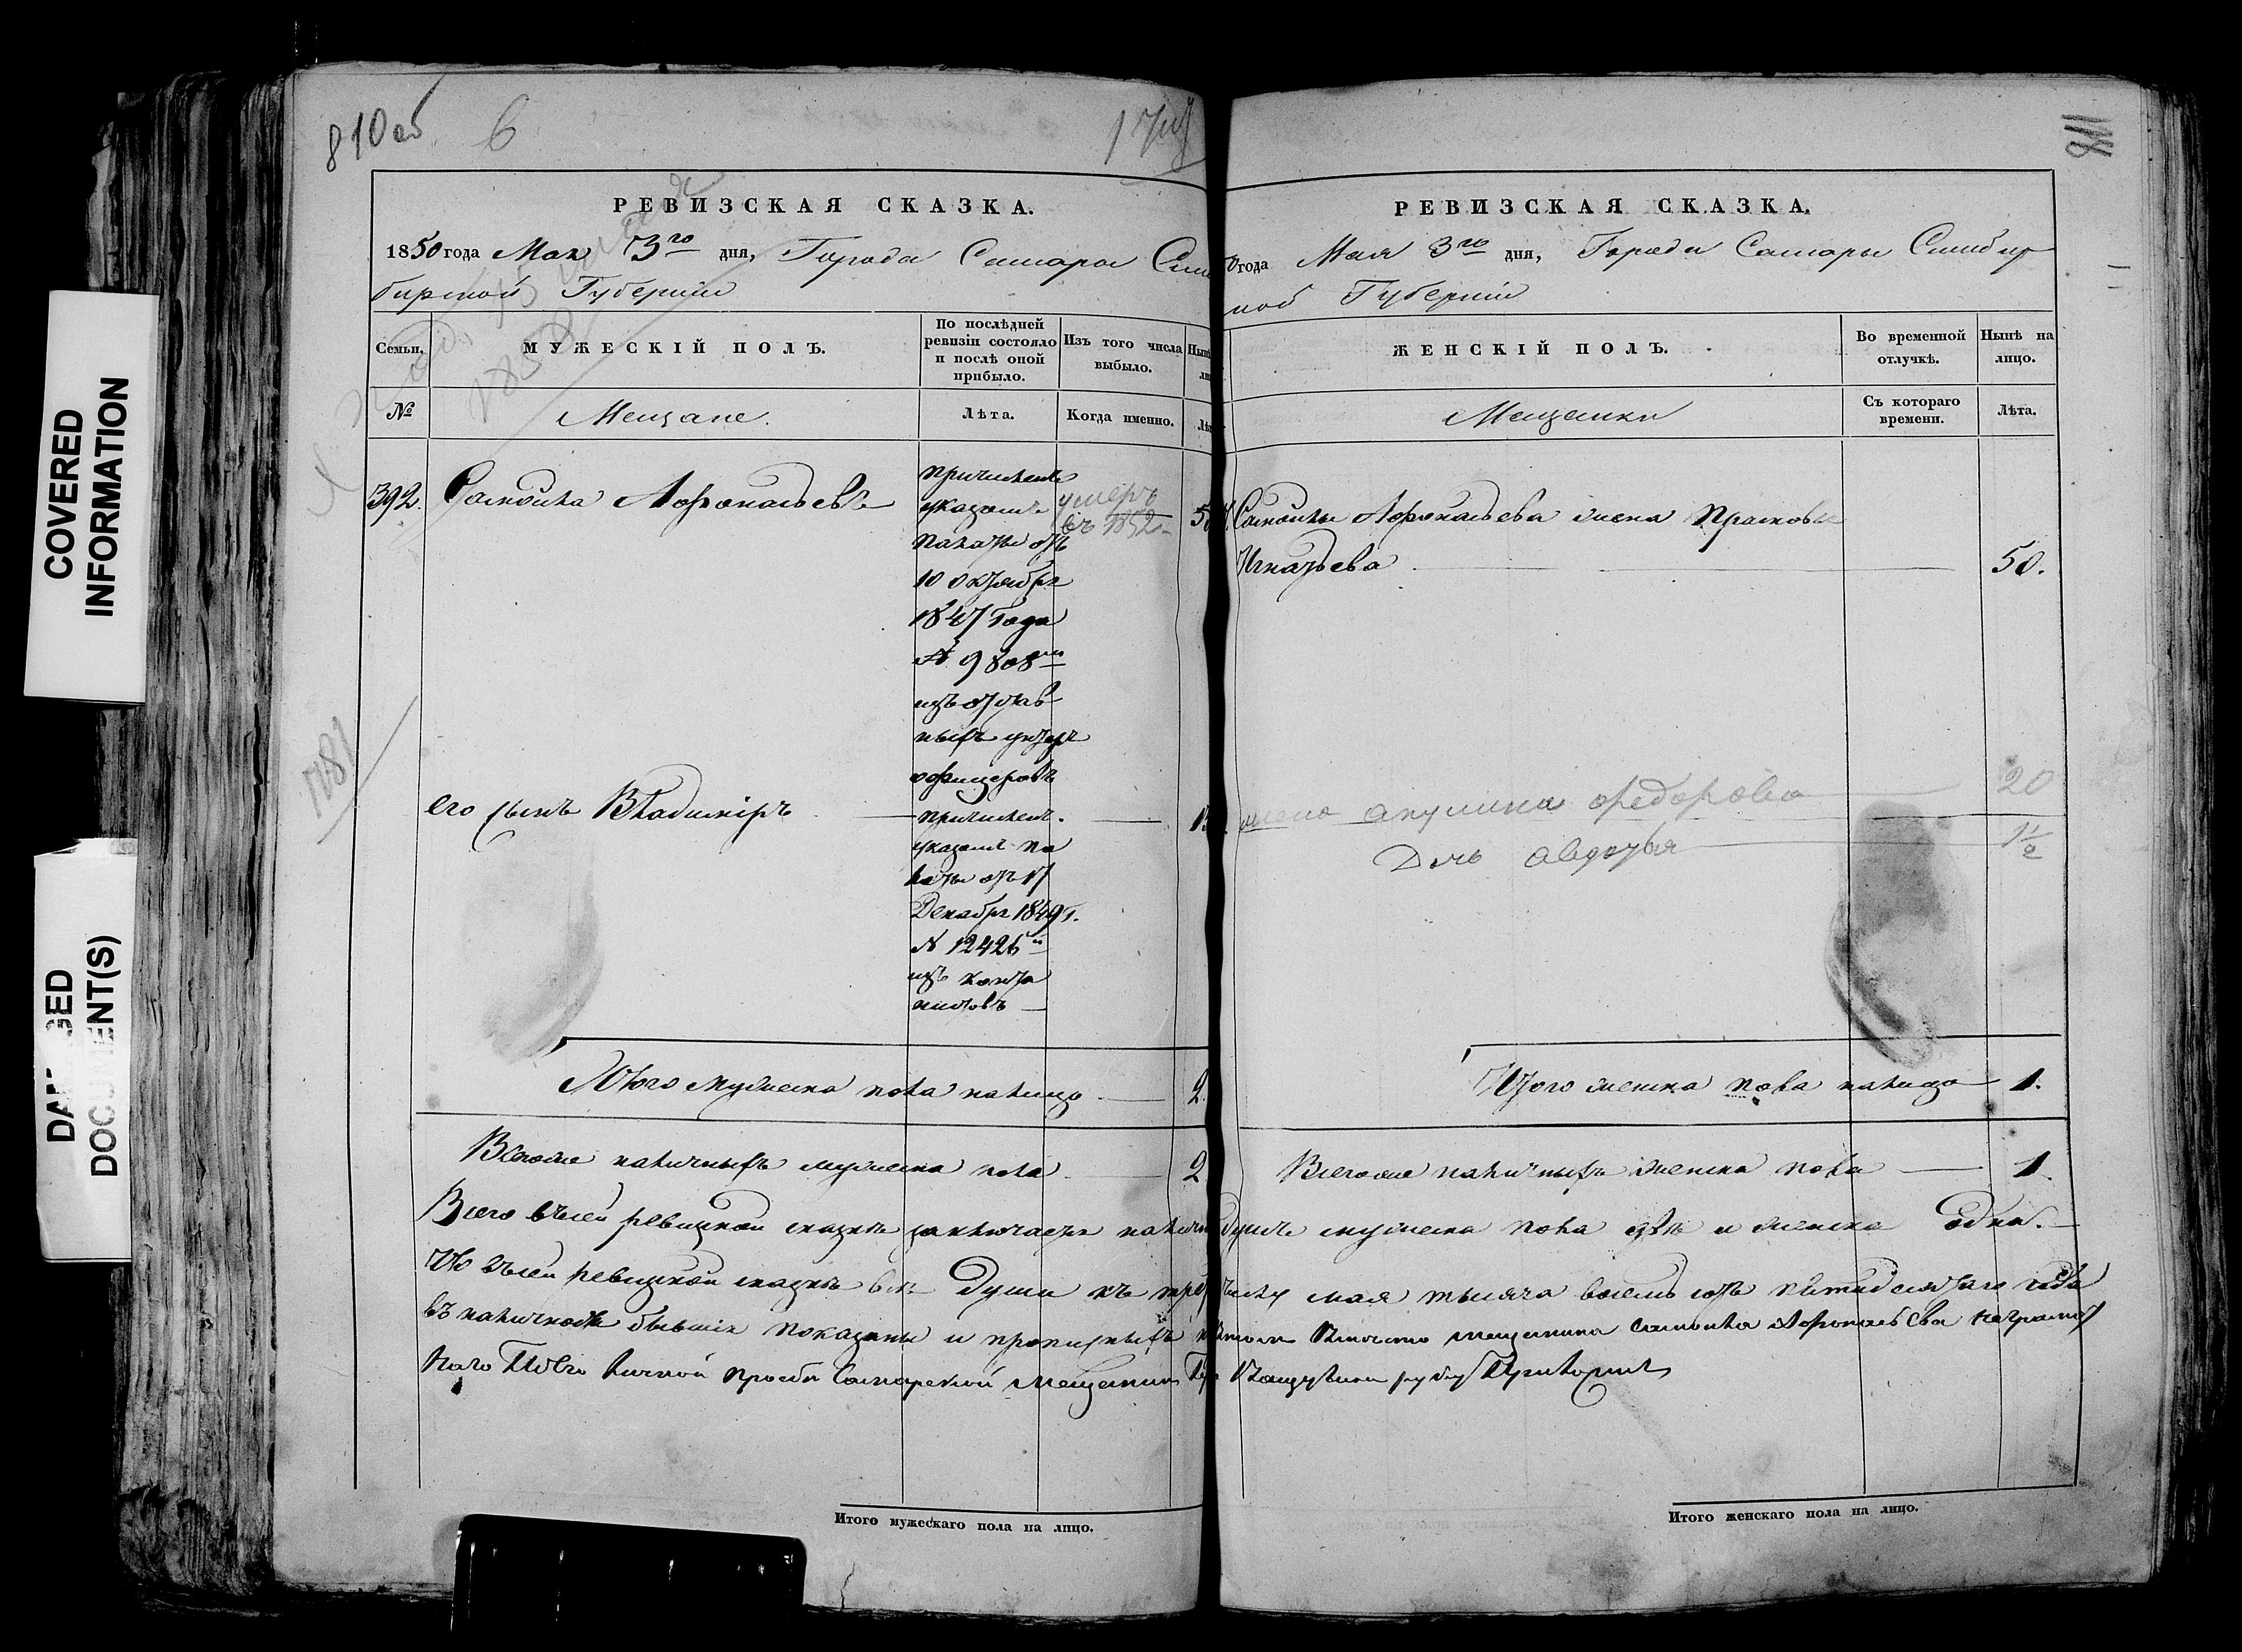 COVERED
INFORMATION
DOCUMENT(S)
810 об
6
811
1781
РЕВИЗСКАЯ СКАЗКА.
1850 года Мая 3го дня, Города Самары Сим
бирской Губернии
Семьи.
МУЖЕСКІЙ ПОЛЪ.
По послѣдней
ревизіи состояло
и послѣ оной
прибыло.
Изъ того числа
выбыло.
№
Мещане.
Лѣта.
Когда именно.
392.
Самойла Афонасьевъ
причисленъ
указомъ
палаты отъ
10 октября
1847 Года
№ 9808мъ
изъ отстав
ныхъ унтеръ
офицеровъ
умеръ
въ 1852
его сынъ Владимиръ
причислен.
указомъ па
латы отъ 17
Декабря 1849 г.
№ 12426й
изъ канто
нистовъ
Итого мужеска пола налицо 2.
Всего же наличныхъ мужеска пола 2
Итого мужескаго пола на лицо.
РЕВИЗСКАЯ СКАЗКА.
0 года Мая 3го дня, Города Самары Симбир
ной Губернии
ЖЕНСКІЙ ПОЛЪ.
Во временной
отлучкѣ.
Нынѣ на
лицо.
Мещанки
Съ котораго
времени.
Лѣта.
Самойлы Афонасьева жена Прасковья
Игнатьева 50.
жена Акулина Федорова 20
Дочь Авдотья 1½
Итого женска пола налицо 1.
Всего же наличныхъ женска пола 1.
Всего въ сей ревизкой сказкѣ заключается налич душъ мужеска пола двѣ и женска одна.
Что въ сей ревизкой сказкѣ все Души къ тре числу мая тысяча восемь сотъ пятидесятаго года
въ наличности бывшия показаны и прописныхъ мещанина Самойла Афонасьева неграмот
наго По его личной прозбе Самарской мещанин руку Приложилъ
Итого женскаго пола на лицо.